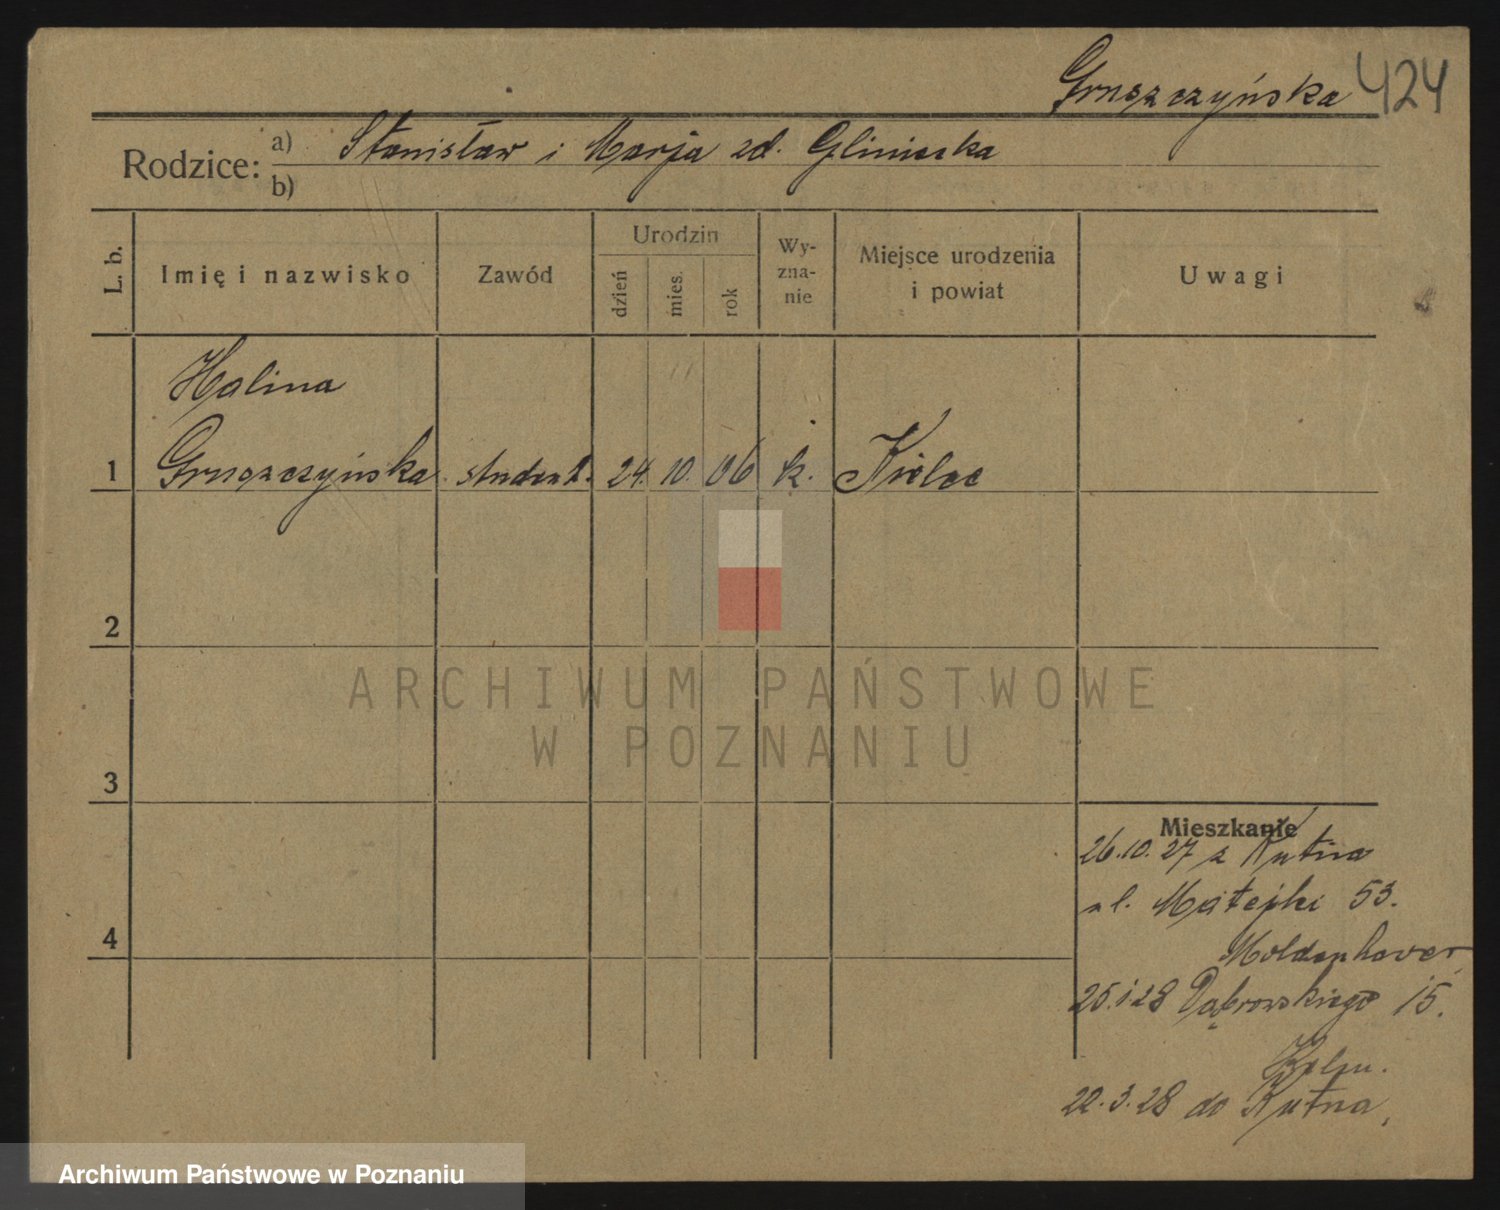 Gruszczyńska 424
Rodzice: a) Stanisław i Marja zd. Gliniecka
b)
L. b. Imię i nazwisko Zawód Urodzin dzień mies. rok Wy-zna-nie Miejsce urodzenia i powiat Uwagi
Halina
1 Gruszczyńska student. 24. 10. 06 k. Kielce
2
ARCHIWUM PAŃSTWOWE
W POZNANIU
3
Mieszkanie
26.10.27 z Kutna
ul. Matejki 53.
4
Moldenhaver
25.1.28 Dąbrowskiego 15.
22.3.28 do Kutna,
Archiwum Państwowe w Poznaniu